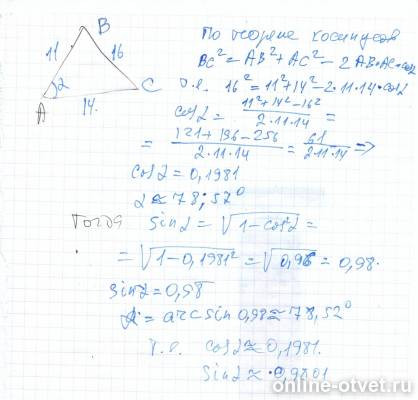 B
11
16
2
A
14
C
По теореме косинусов
BC² = AB² + AC² - 2AB·AC·cosα
т.е. 16² = 11² + 14² - 2·11·14·cosα
cosα = (11² + 14² - 16²) / (2·11·14) =
= (121 + 196 - 256) / (2·11·14) = 61 / (2·11·14) =>
cosα = 0,1981
α ≈ 78,52°
Тогда sinα = √(1 - cos²α) =
= √(1 - 0,1981²) = √0,96 = 0,98.
sinα = 0,98
α = arcsin 0,98 ≈ 78,52°
т.е. cosα ≈ 0,1981.
sinα ≈ 0,9801
online-otvet.ru